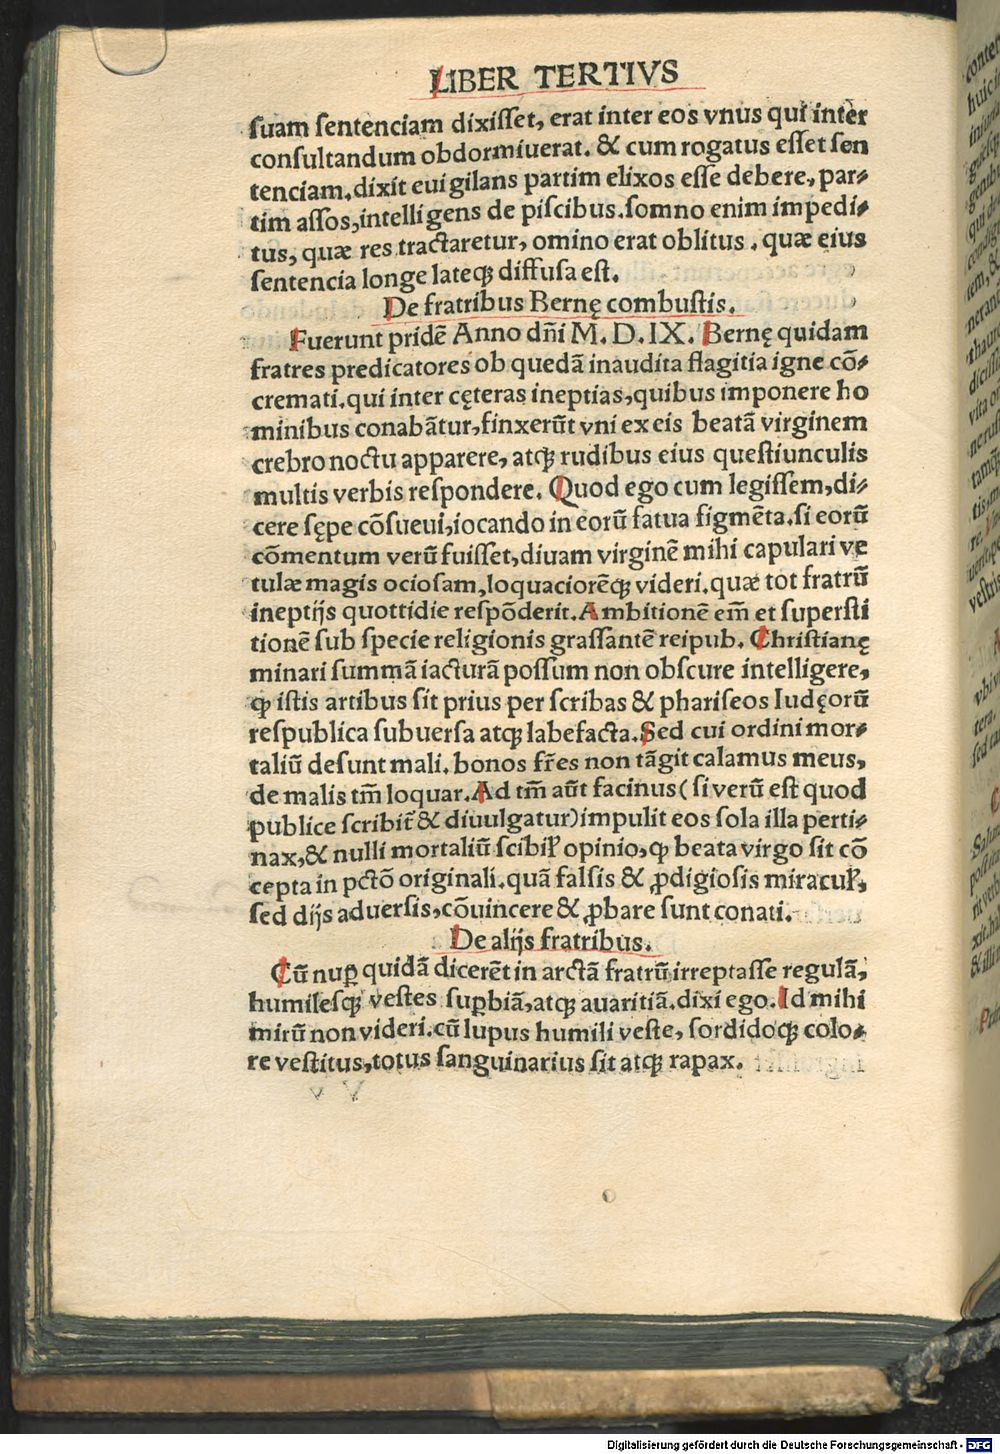 LIBER TERTIVS
ſuam ſentenciam dixiſſet, erat inter eos vnus qui inter
conſultandum obdormiuerat. & cum rogatus eſſet ſen
tenciam, dixit euigilans partim elixos eſſe debere, par⸗
tim aſſos, intelligens de piſcibus. ſomno enim impedi⸗
tus, quæ res tractaretur, omino erat oblitus. quæ eius
ſentencia longe lateqꝫ diffuſa eſt.
De fratribus Bernę combuſtis.
Fuerunt pridē Anno dñi M. D. IX. Bernę quidam
fratres predicatores ob quedā inaudita flagitia igne cō⸗
cremati. qui inter cęteras ineptias, quibus imponere ho
minibus conabātur, finxerūt vni ex eis beatā virginem
crebro noctu apparere, atqꝫ rudibus eius queſtiunculis
multis verbis reſpondere. Quod ego cum legiſſem, di⸗
cere ſępe cōſueui, iocando in eorū fatua figmēta. ſi eorū
cōmentum verū fuiſſet, diuam virginē mihi capulari ve
tulæ magis ocioſam, loquaciorēqꝫ videri. quæ tot fratrū
ineptijs quottidie reſpōderit. Ambitionē em̄ et ſuperſti
tionē ſub ſpecie religionis graſſantē reipub. Chriſtianę
minari ſummā iacturā poſſum non obſcure intelligere,
ꝙ iſtis artibus ſit prius per ſcribas & phariſeos Iudęorū
reſpublica ſubuerſa atqꝫ labefacta. Sed cui ordini mor⸗
taliū deſunt mali. bonos fr̄es non tāgit calamus meus,
de malis tm̄ loquar. Ad tm̄ aūt facinus (ſi verū eſt quod
publice ſcribit̄ & diuulgatur) impulit eos ſola illa perti⸗
nax, & nulli mortaliū ſcibiꝉ opinio, ꝙ beata virgo ſit cō
cepta in pctō originali. quā falſis & ꝓdigioſis miracuꝉ,
ſed dijs aduerſis, cōuincere & ꝓbare ſunt conati.
De alijs fratribus.
Cū nuꝑ quidā dicerēt in arctā fratrū irreptaſſe regulā,
humileſqꝫ veſtes ſuꝑbiā, atqꝫ auaritiā. dixi ego. Id mihi
mirū non videri. cū lupus humili veſte, ſordidoqꝫ colo⸗
re veſtitus, totus ſanguinarius ſit atqꝫ rapax.
Digitalisierung gefördert durch die Deutsche Forschungsgemeinschaft - DFG